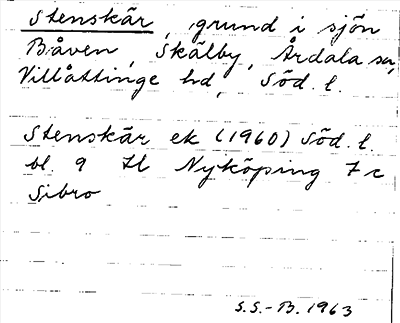 Stenskär, grund i sjön
Båven, Skälby, Årdala sn,
Villåttinge hd, Söd. l.
Stenskär ek (1960) Söd. l.
bl. 9 H Nyköping 7 c
Sibro
S.S.-B. 1963